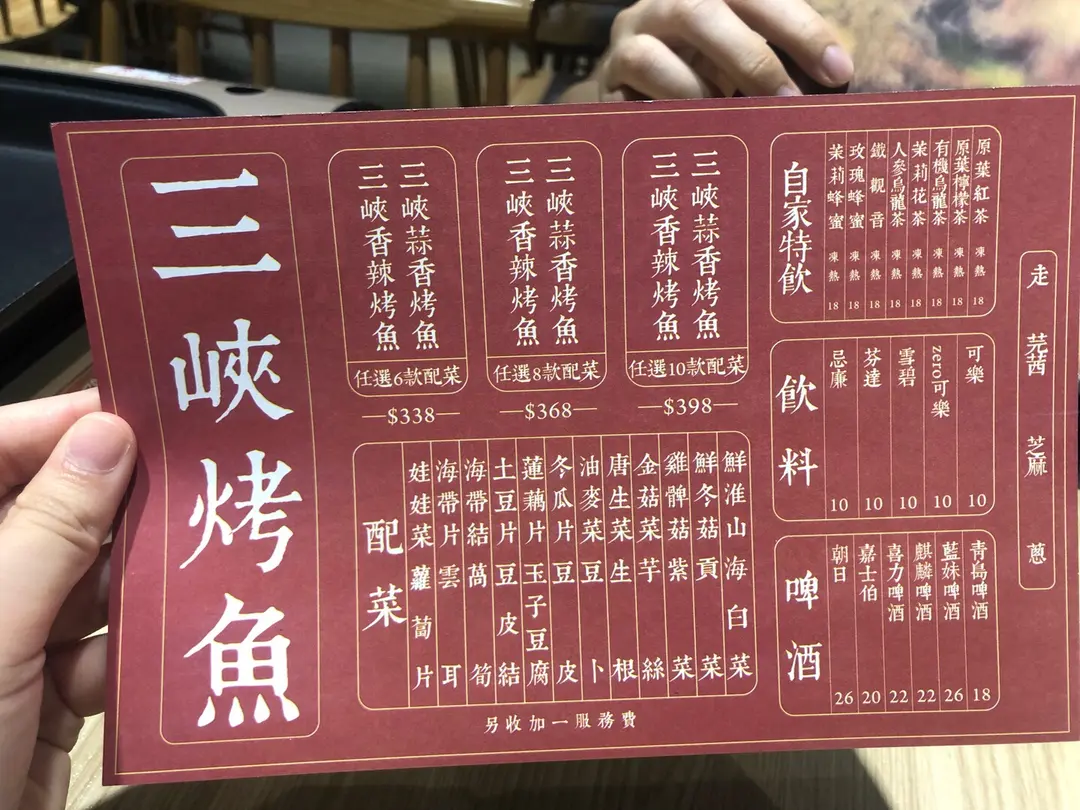 三峽烤魚
三峽蒜香烤魚
三峽香辣烤魚
任選6款配菜
—$338—
三峽蒜香烤魚
三峽香辣烤魚
任選8款配菜
—$368—
三峽蒜香烤魚
三峽香辣烤魚
任選10款配菜
—$398—
配菜
鮮淮山 海白菜
鮮冬菇 貢菜
雞髀菇 紫菜
金菇菜 芋絲
唐生菜 生根
油麥菜 豆卜
冬瓜片 豆皮
蓮藕片 玉子豆腐
土豆片 豆皮結
海帶結 萵筍
海帶片 雲耳
娃娃菜 蘿蔔片
另收加一服務費
自家特飲
原葉紅茶 凍熱 18
原葉檸檬茶 凍熱 18
有機烏龍茶 凍熱 18
茉莉花茶 凍熱 18
人參烏龍茶 凍熱 18
鐵觀音 凍熱 18
玫瑰蜂蜜 凍熱 18
茉莉蜂蜜 凍熱 18
飲料
可樂 10
zero可樂 10
雪碧 10
芬達 10
忌廉 10
啤酒
青島啤酒 18
藍妹啤酒 26
麒麟啤酒 22
喜力啤酒 22
嘉士伯 20
朝日 26
走 芫茜 芝麻 蔥